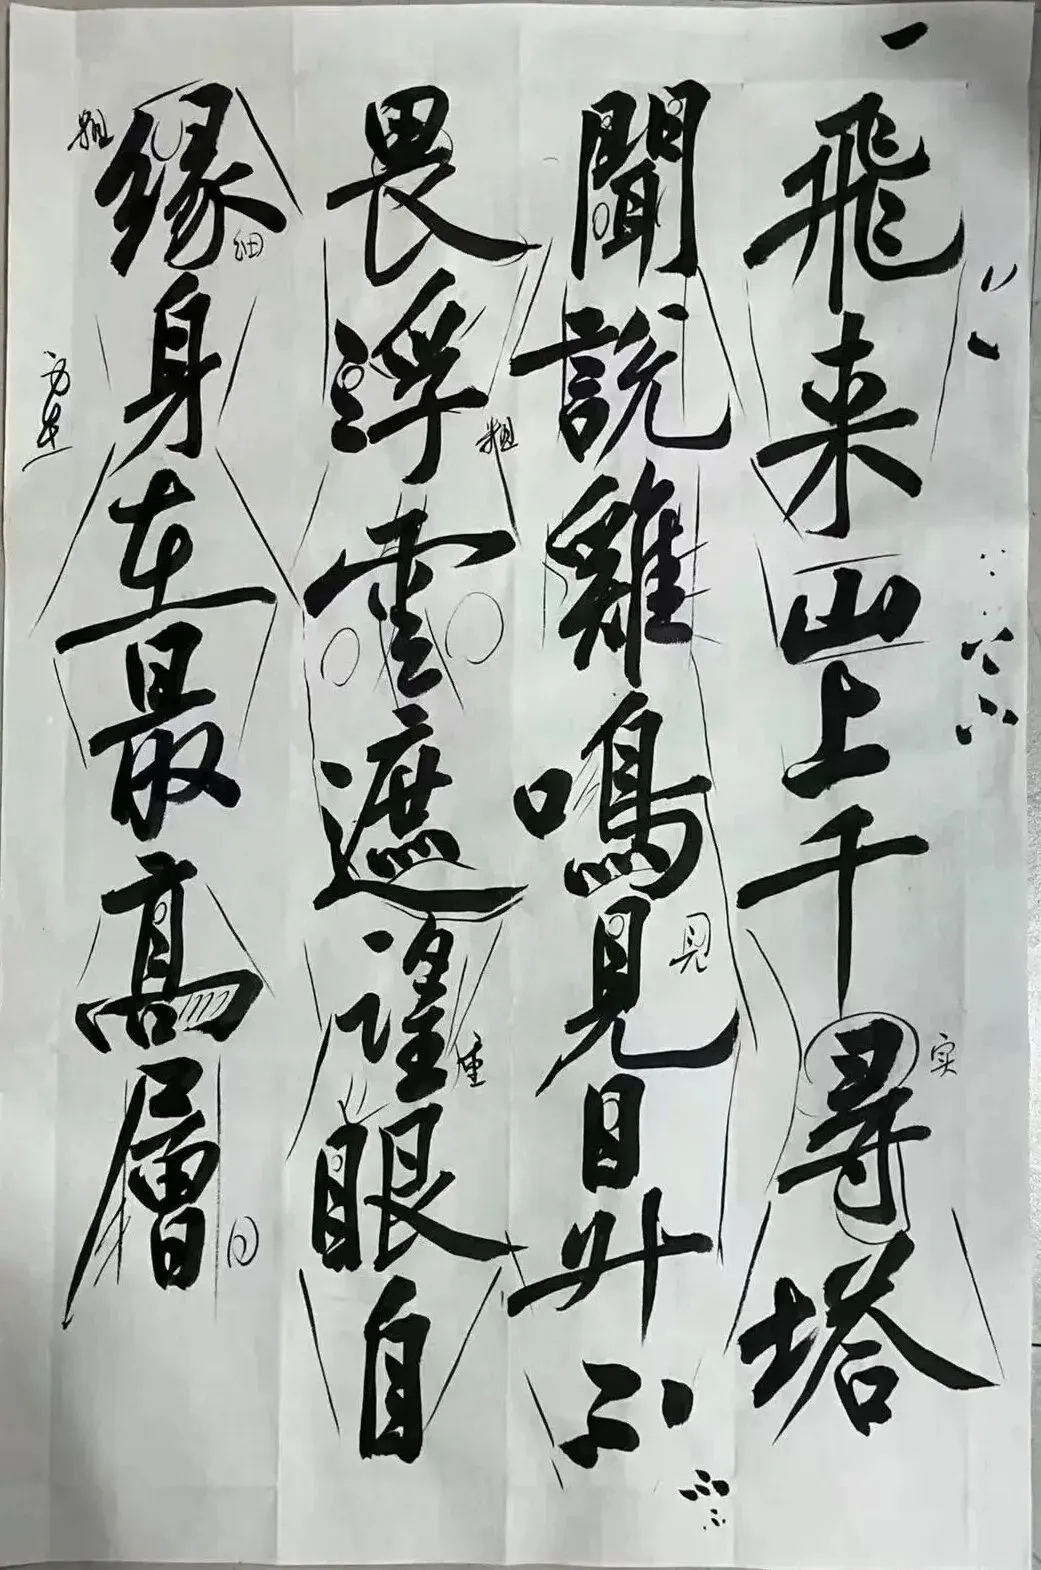 飛来山上千尋塔
聞説雞鳴見日升不
畏浮雲遮望眼自
緣身在最高層
实
見
粗
重
粗
细